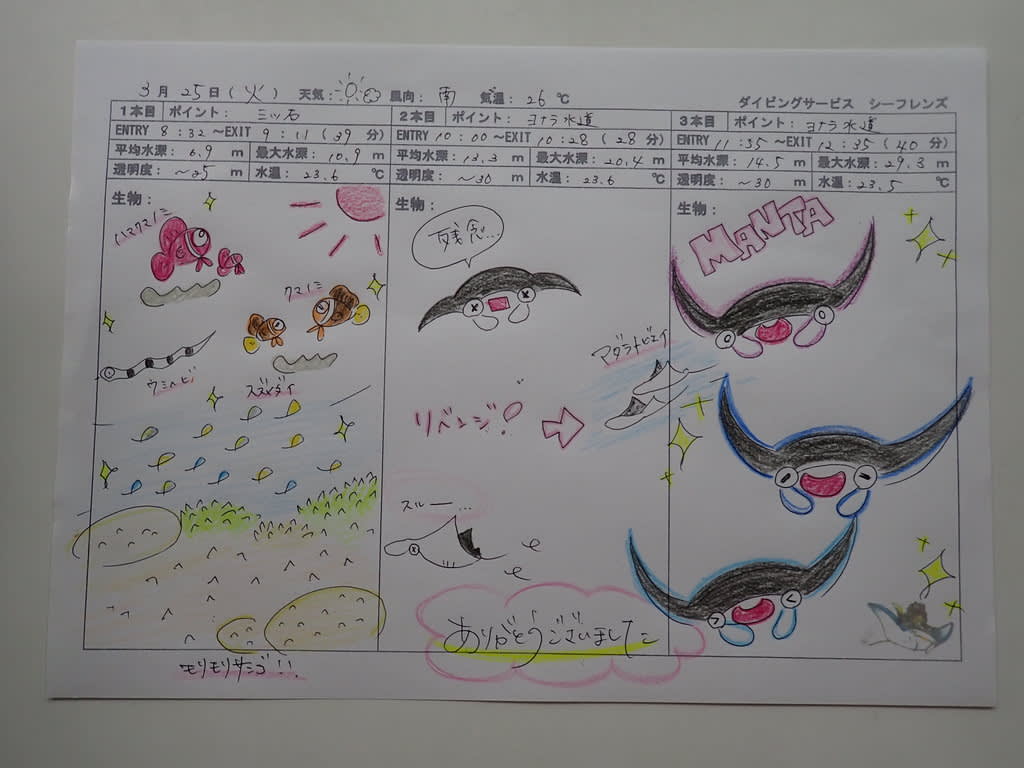 3月25日(火) 天気: 風向: 南 気温: 26℃
ダイビングサービス シーフレンズ
1本目 ポイント: 三ッ石
ENTRY 8:32 ～EXIT 9:11 (39分)
平均水深: 6.9 m 最大水深: 10.9 m
透明度: ～25 m 水温: 23.6 ℃
生物:
ハマクマノミ
クマノミ
ウミヘビ
スズメダイ
モリモリサンゴ!!
2本目 ポイント: ヨナラ水道
ENTRY 10:00 ～EXIT 10:28 (28分)
平均水深: 13.3 m 最大水深: 20.4 m
透明度: ～30 m 水温: 23.6 ℃
生物:
残念...
マダラトビエイ
リベンジ!
スルー...
ありがとうございました
3本目 ポイント: ヨナラ水道
ENTRY 11:55 ～EXIT 12:35 (40分)
平均水深: 14.5 m 最大水深: 29.3 m
透明度: ～30 m 水温: 23.5 ℃
生物:
MANTA